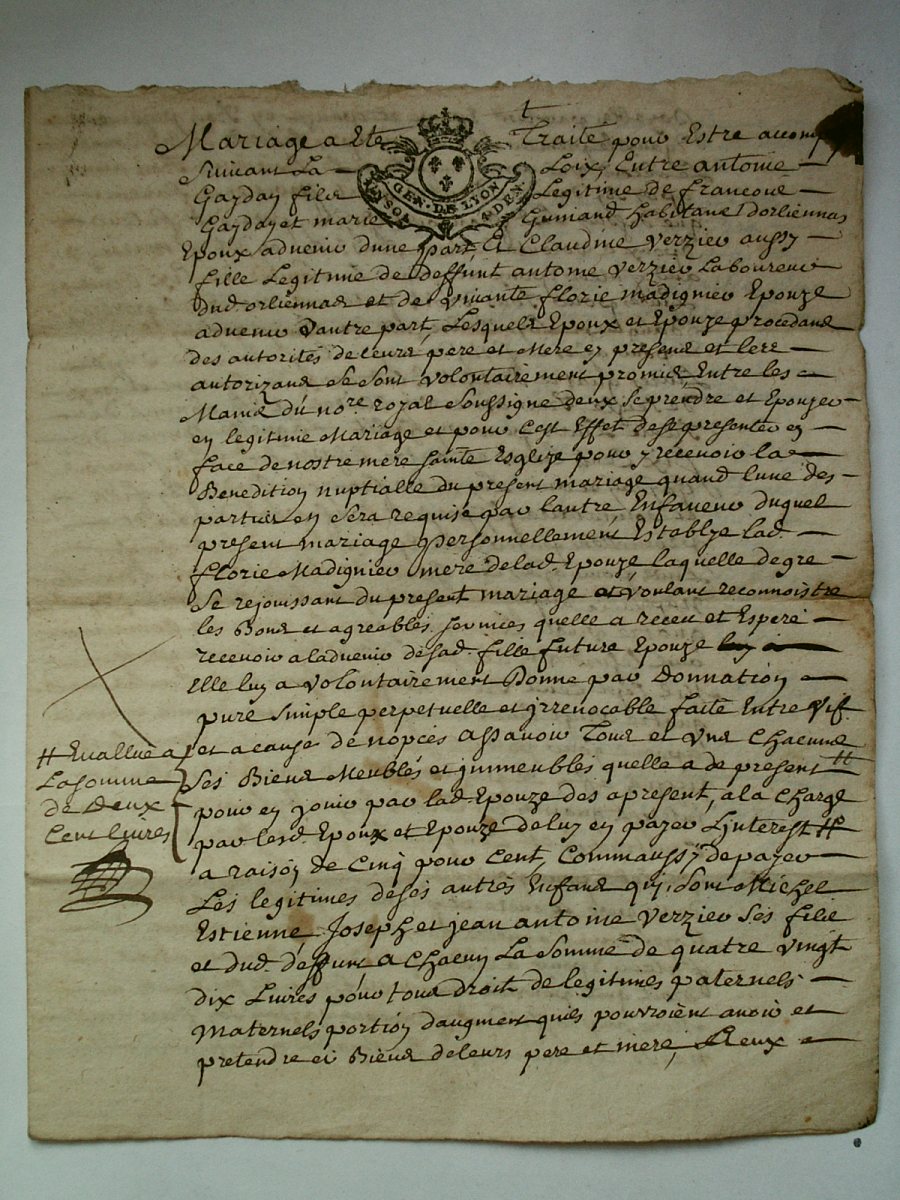 Mariage a Ete Traité pour Estre accomp
Suivant La Loix, Entre antoine
Gayday fils Legitime de francois
Gayday et marie Guniand habitans dorliennas
Epoux advenir dune part, Et Claudine Verzier aussy
fille Legitime de deffunt antoine Verzier Laboureur
dud. orliennas et de vivante florie madignier Epouze
advenir d'autre part, Lesquels Epoux et Epouze procedans
des autorités de leurs pere et Mere en presens et les
autorizans Se Sont Volontairement promis Entre les
Mains du nore. royal Soussigne deux Se prendre et Epouzer
en legitime Mariage et pour C'est Effet de se presenter en
face de nostre mere Sainte Esglize pour y recevoir la
Benedition nuptialle du present mariage quand lune des
parties en Sera requise par lautre Enfaveur duquel
present mariage personnellement Establye lad.
florie Madignier mere de lad. Epouze laquelle de gre
Se rejouissant du present mariage et voulant reconnoistre
les Bons et agreables Services quelle a receu et Espere
recevoir a ladvenir de sad. fille future Epouze
Elle luy a volontairement Donne par Donnation
pure Simple perpetuelle et jrrevocable faite Entre vif
et a cause de nopces assavoir Tous et Uns Chacuns
Ses Biens Meubles et jmmeubles quelle a de present #
# Evallué a
La somme
de Deux
Cent livres
pour en jouir par lad. Epouze des apresent, a la Charge
par lesd. Epoux et Epouze de luy en payer Linterest #
a raison de Cinq pour Cent, Comm'aussy de payer
Les legitimes de ses autres Enfans qui Sont Michel
Estienne Joseph et jean antoine Verzier Ses fils
et dud. deffunt a Chacun La Somme de quatre Vingt
dix Livres pour tous droit de legitimes paternels
Maternels portion d'augment quils pourroient avoir et
pretendre es Biens de leurs pere et mere,